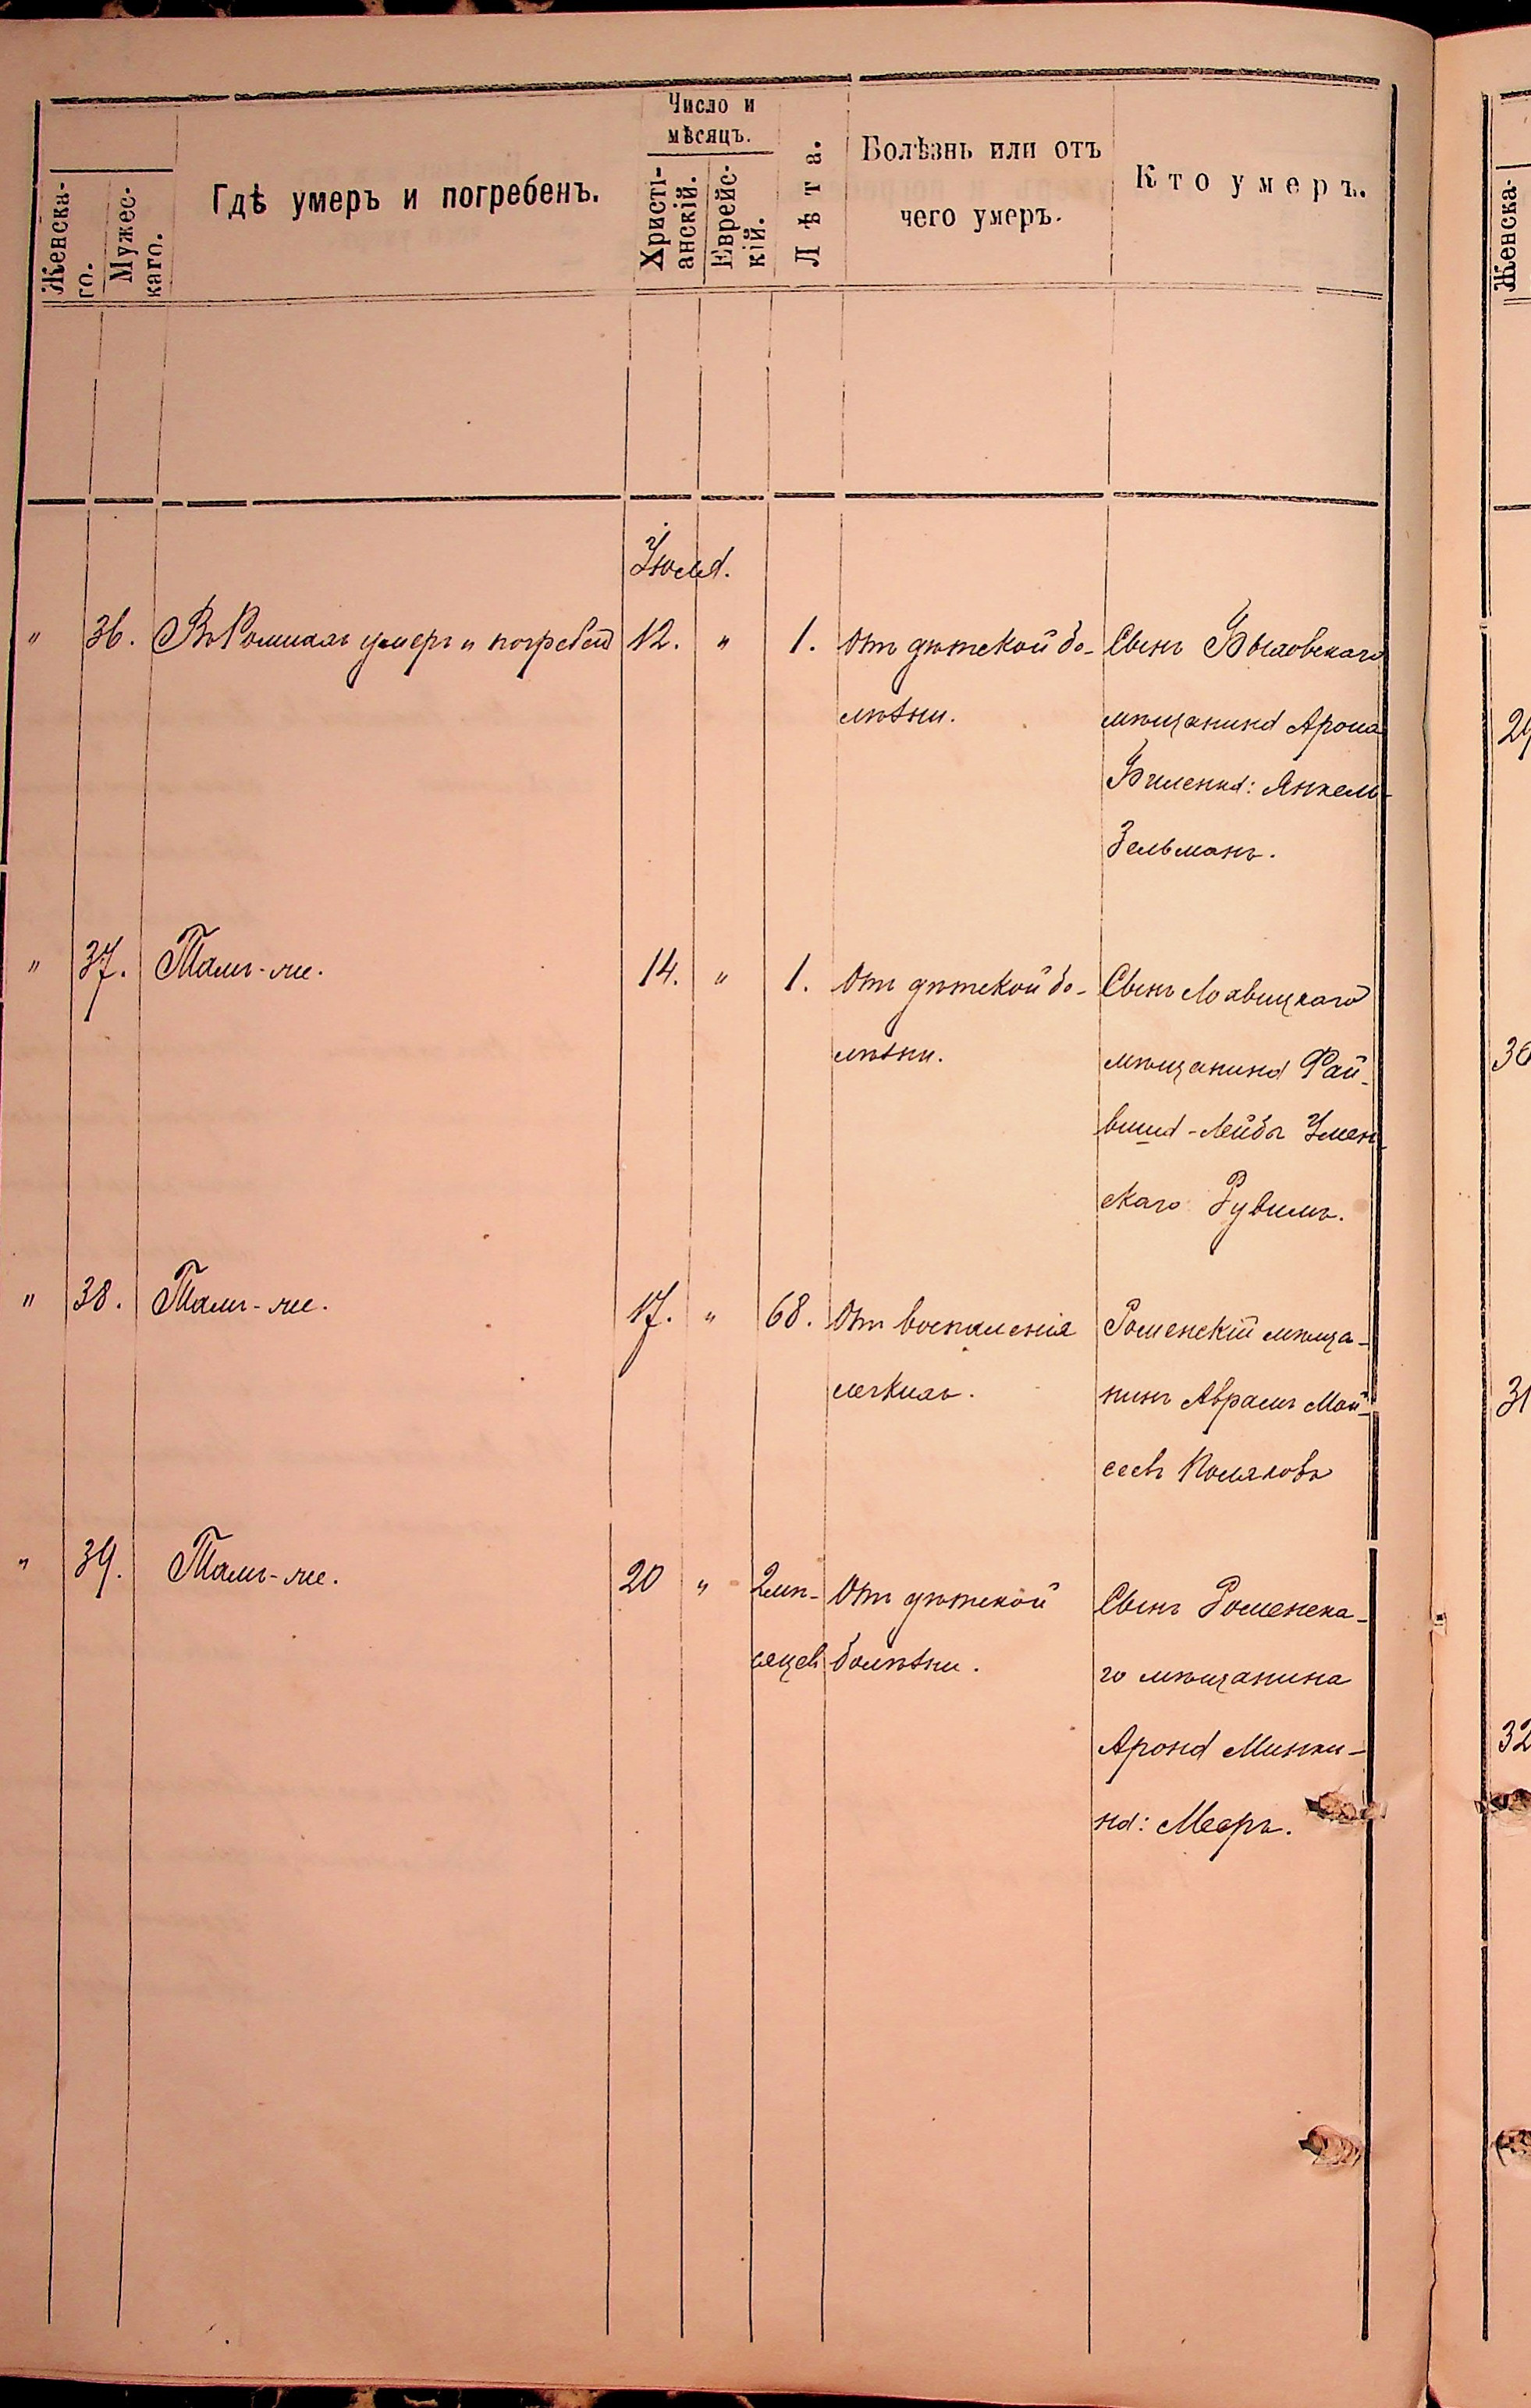 Женска-
го.
Мужес-
каго.
Гдѣ умеръ и погребенъ.
Число и
мѣсяцъ.
Христі-
анскій.
Еврейс-
кій.
Лѣта.
Болѣзнь или отъ
чего умеръ.
Кто умеръ.
Іюля.
" 36. Въ Ромнахъ умеръ и погребен 12. " 1. Отъ дѣтской бо- Сынъ Быховскаго
лѣзни. мѣщанина Арона
Биленка: Янкель
Зельманъ.
" 37. Тамъ-же. 14. " 1. Отъ дѣтской бо- Сынъ Лохвицкаго
лѣзни. мѣщанина Фай-
виша-Лейбы Умен
скаго Рувимъ.
" 38. Тамъ-же. 17. " 68. Отъ воспаленія Роменскій мѣща-
легкихъ. нинъ Аврамъ Мой-
сеевъ Поляковъ
" 39. Тамъ-же. 20 " 2 мѣ- Отъ дѣтской Сынъ Роменска-
сяцев болѣзни. го мѣщанина
Арона Минки-
на: Мееръ.
Женска-
29
30
31
32